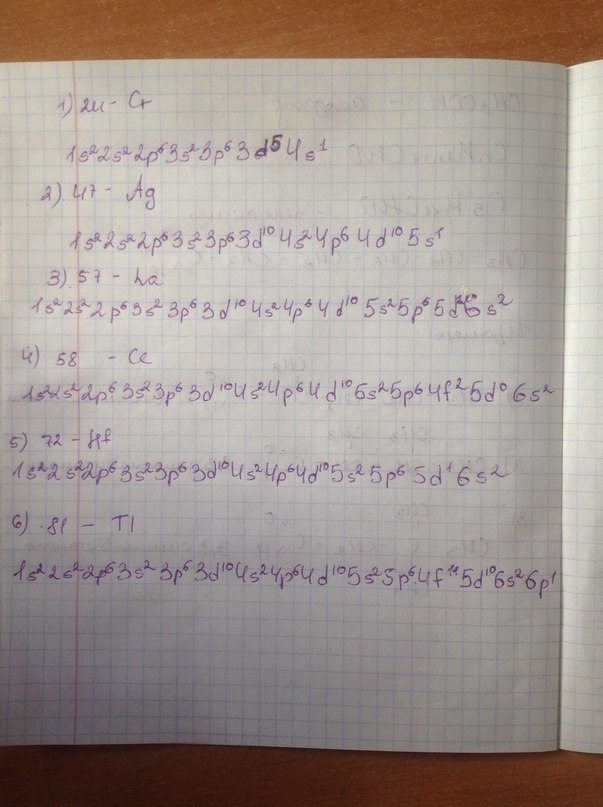 1) 24 - Cr
1s²2s²2p⁶3s²3p⁶3d⁵4s¹
2) 47 - Ag
1s²2s²2p⁶3s²3p⁶3d¹⁰4s²4p⁶4d¹⁰5s¹
3) 57 - La
1s²2s²2p⁶3s²3p⁶3d¹⁰4s²4p⁶4d¹⁰5s²5p⁶5d 6s²
4) 58 - Ce
1s²2s²2p⁶3s²3p⁶3d¹⁰4s²4p⁶4d¹⁰5s²5p⁶4f²5d⁰6s²
5) 72 - Hf
1s²2s²2p⁶3s²3p⁶3d¹⁰4s²4p⁶4d¹⁰5s²5p⁶5d¹6s²
6) 81 - Tl
1s²2s²2p⁶3s²3p⁶3d¹⁰4s²4p⁶4d¹⁰5s²5p⁶4f¹⁴5d¹⁰6s²6p¹